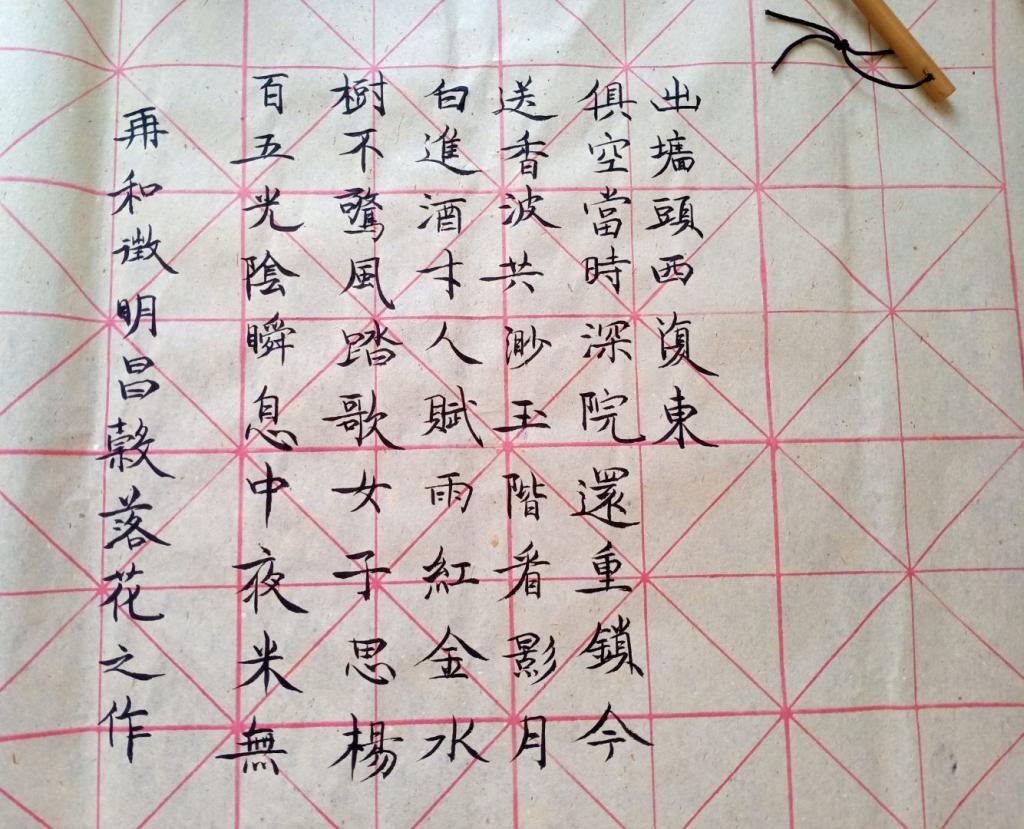 再和徵明昌穀落花之作
百五光陰瞬息中夜米無
樹不驚風踏歌女子思楊
白進酒才人賦雨紅金水
送香波共渺玉階看影月
俱空當時深院還重鎖今
出墻頭西復東